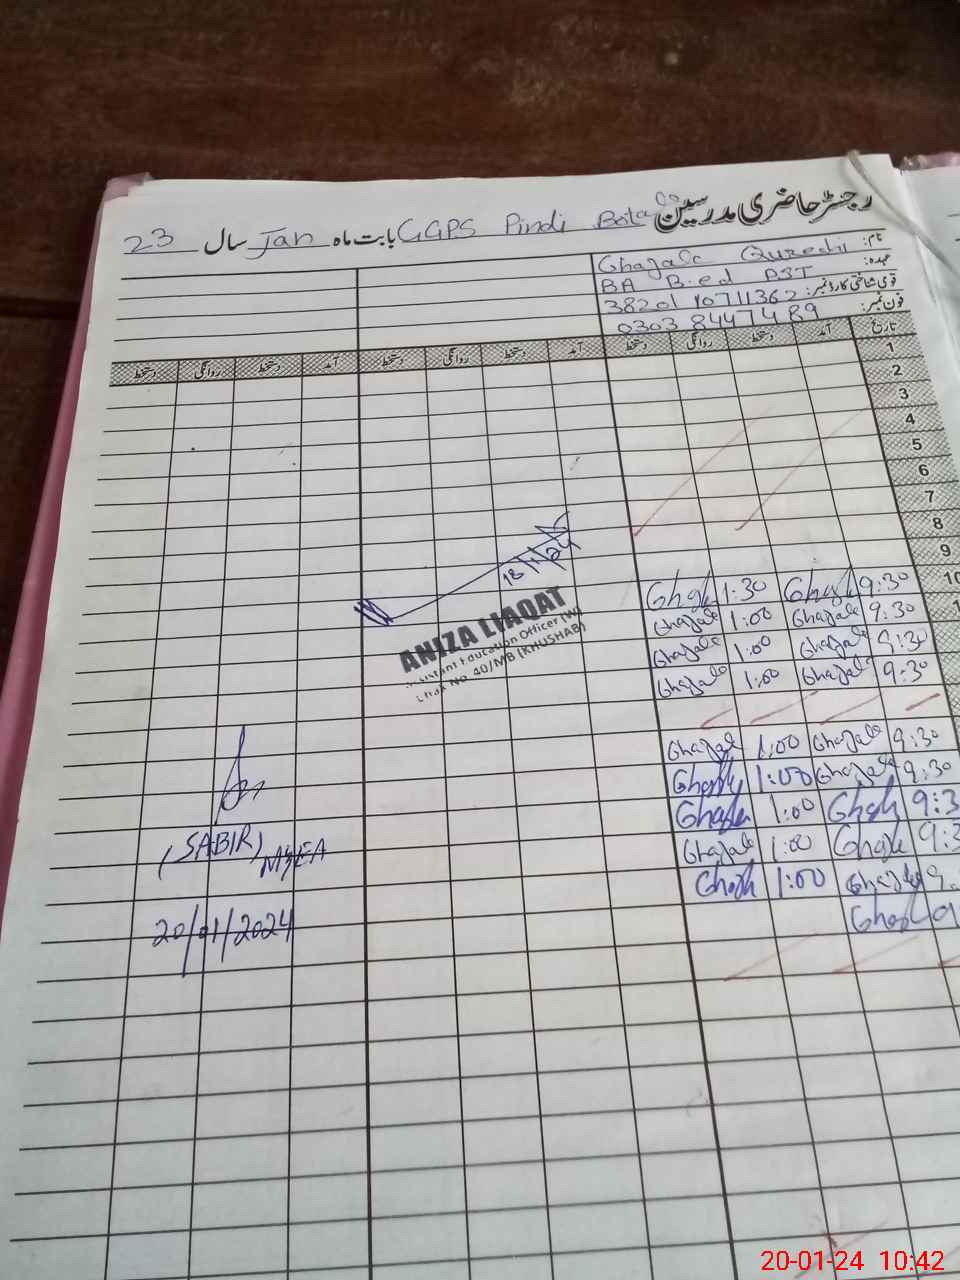 رجسٹر حاضری مدرسین GGPS Pindi Bota بابت ماہ Jan سال 23
نام: Ghazala Qureshi
عہدہ: BA B.ed PST
قومی شناختی کارڈ نمبر: 38201 10711362
فون نمبر: 0303 8447489
تاریخ آمد دستخط روانگی دستخط آمد دستخط روانگی دستخط آمد دستخط روانگی دستخط
1
2
3
4
5
6
7
8
9
10 9:30 Ghazala 1:30 Ghazala
9:30 Ghazala 1:00 Ghazala
9:30 Ghazala 1:00 Ghazala
9:30 Ghazala 1:00 Ghazala
9:30 Ghazala 1:00 Ghazala
9:30 Ghazala 1:00 Ghazala
9:3 Ghazala 1:00 Ghazala
9:3 Ghazala 1:00 Ghazala
9: Ghazala 1:00 Ghazala
9 Ghazala
18/1/24
ANIZA LIAQAT
Assistant Education Officer (W)
Chak No. 40/MB (KHUSHAB)
(SABIR) MEA
20/01/2024
20-01-24 10:42